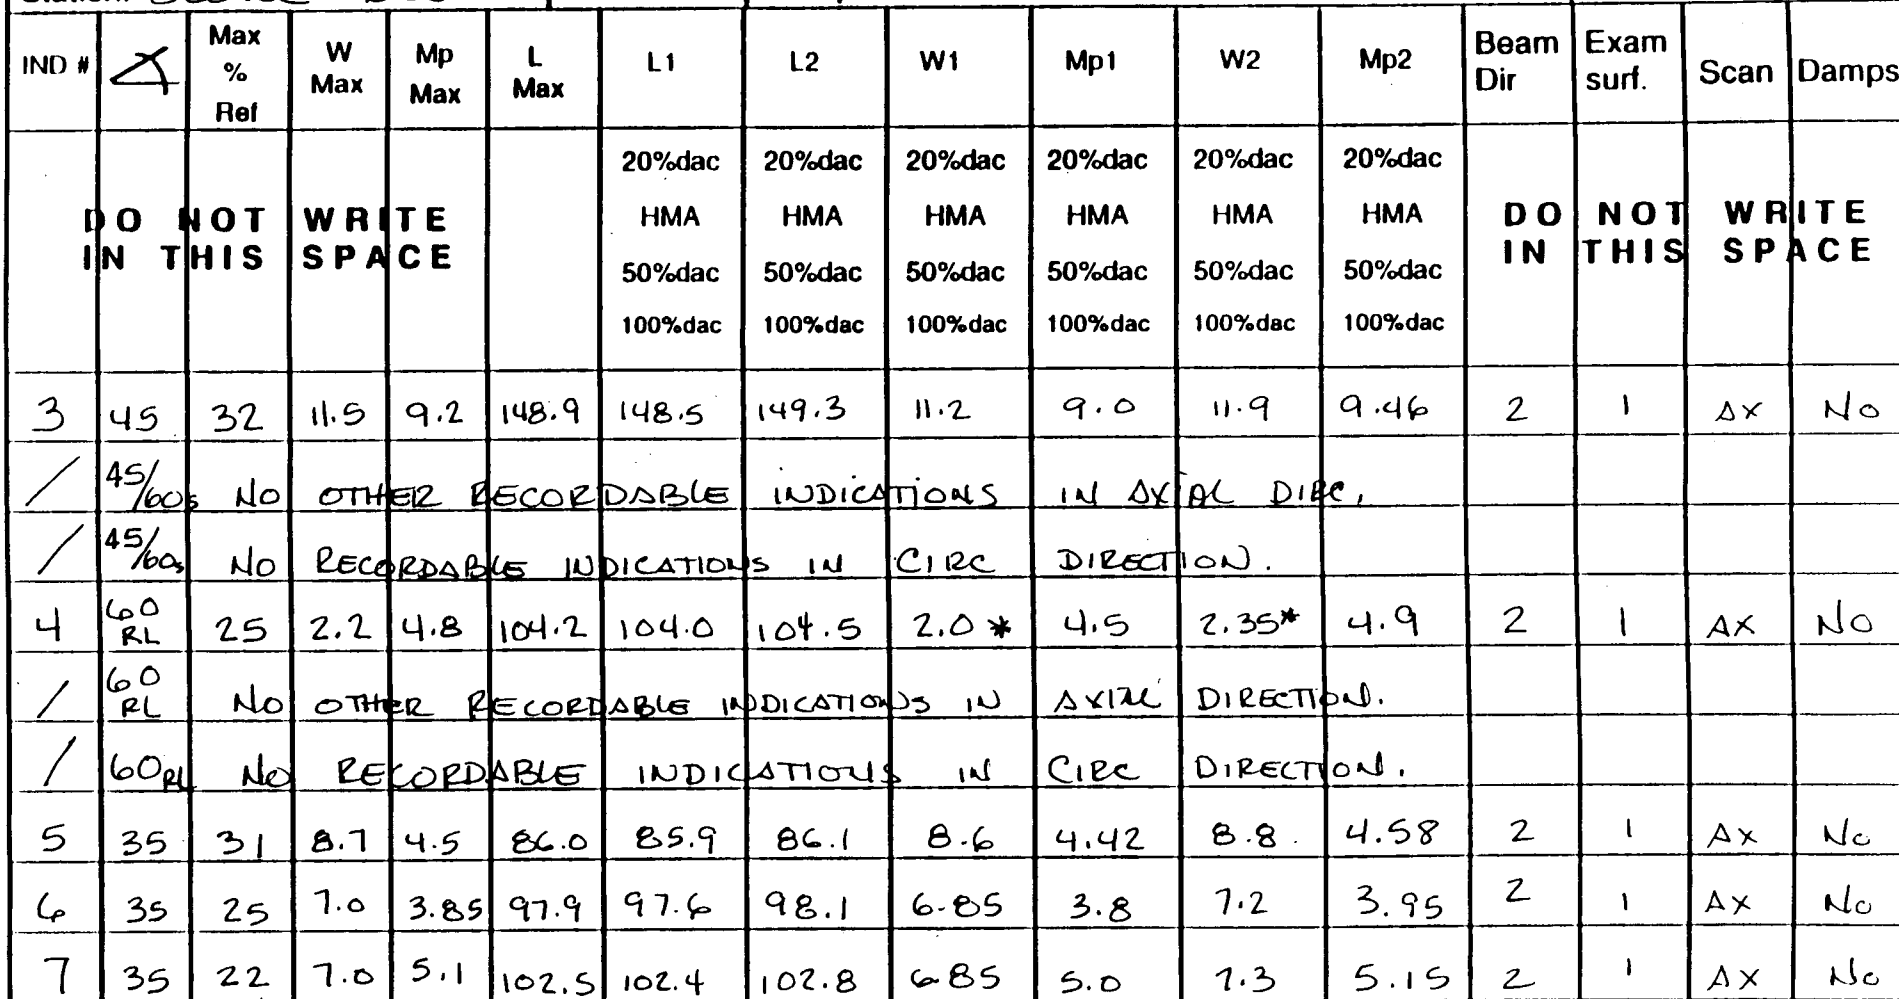 IND # Max % Ref W Max Mp Max L Max L1 L2 W1 Mp1 W2 Mp2 Beam Dir Exam surf. Scan Damps
20%dac 20%dac 20%dac 20%dac 20%dac 20%dac
DO NOT WRITE HMA HMA HMA HMA HMA HMA DO NOT WRITE
IN THIS SPACE 50%dac 50%dac 50%dac 50%dac 50%dac 50%dac IN THIS SPACE
100%dac 100%dac 100%dac 100%dac 100%dac 100%dac
3 45 32 11.5 9.2 148.9 148.5 149.3 11.2 9.0 11.9 9.46 2 1 AX No
/ 45/60s NO OTHER RECORDABLE INDICATIONS IN AXIAL DIRC.
/ 45/60s NO RECORDABLE INDICATIONS IN CIRC DIRECTION.
4 60 RL 25 2.2 4.8 104.2 104.0 104.5 2.0* 4.5 2.35* 4.9 2 1 AX No
/ 60 RL NO OTHER RECORDABLE INDICATIONS IN AXIAL DIRECTION.
/ 60RL NO RECORDABLE INDICATIONS IN CIRC DIRECTION.
5 35 31 8.7 4.5 86.0 85.9 86.1 8.6 4.42 8.8 4.58 2 1 AX No
6 35 25 7.0 3.85 97.9 97.6 98.1 6.85 3.8 7.2 3.95 2 1 AX No
7 35 22 7.0 5.1 102.5 102.4 102.8 6.85 5.0 7.3 5.15 2 1 AX No